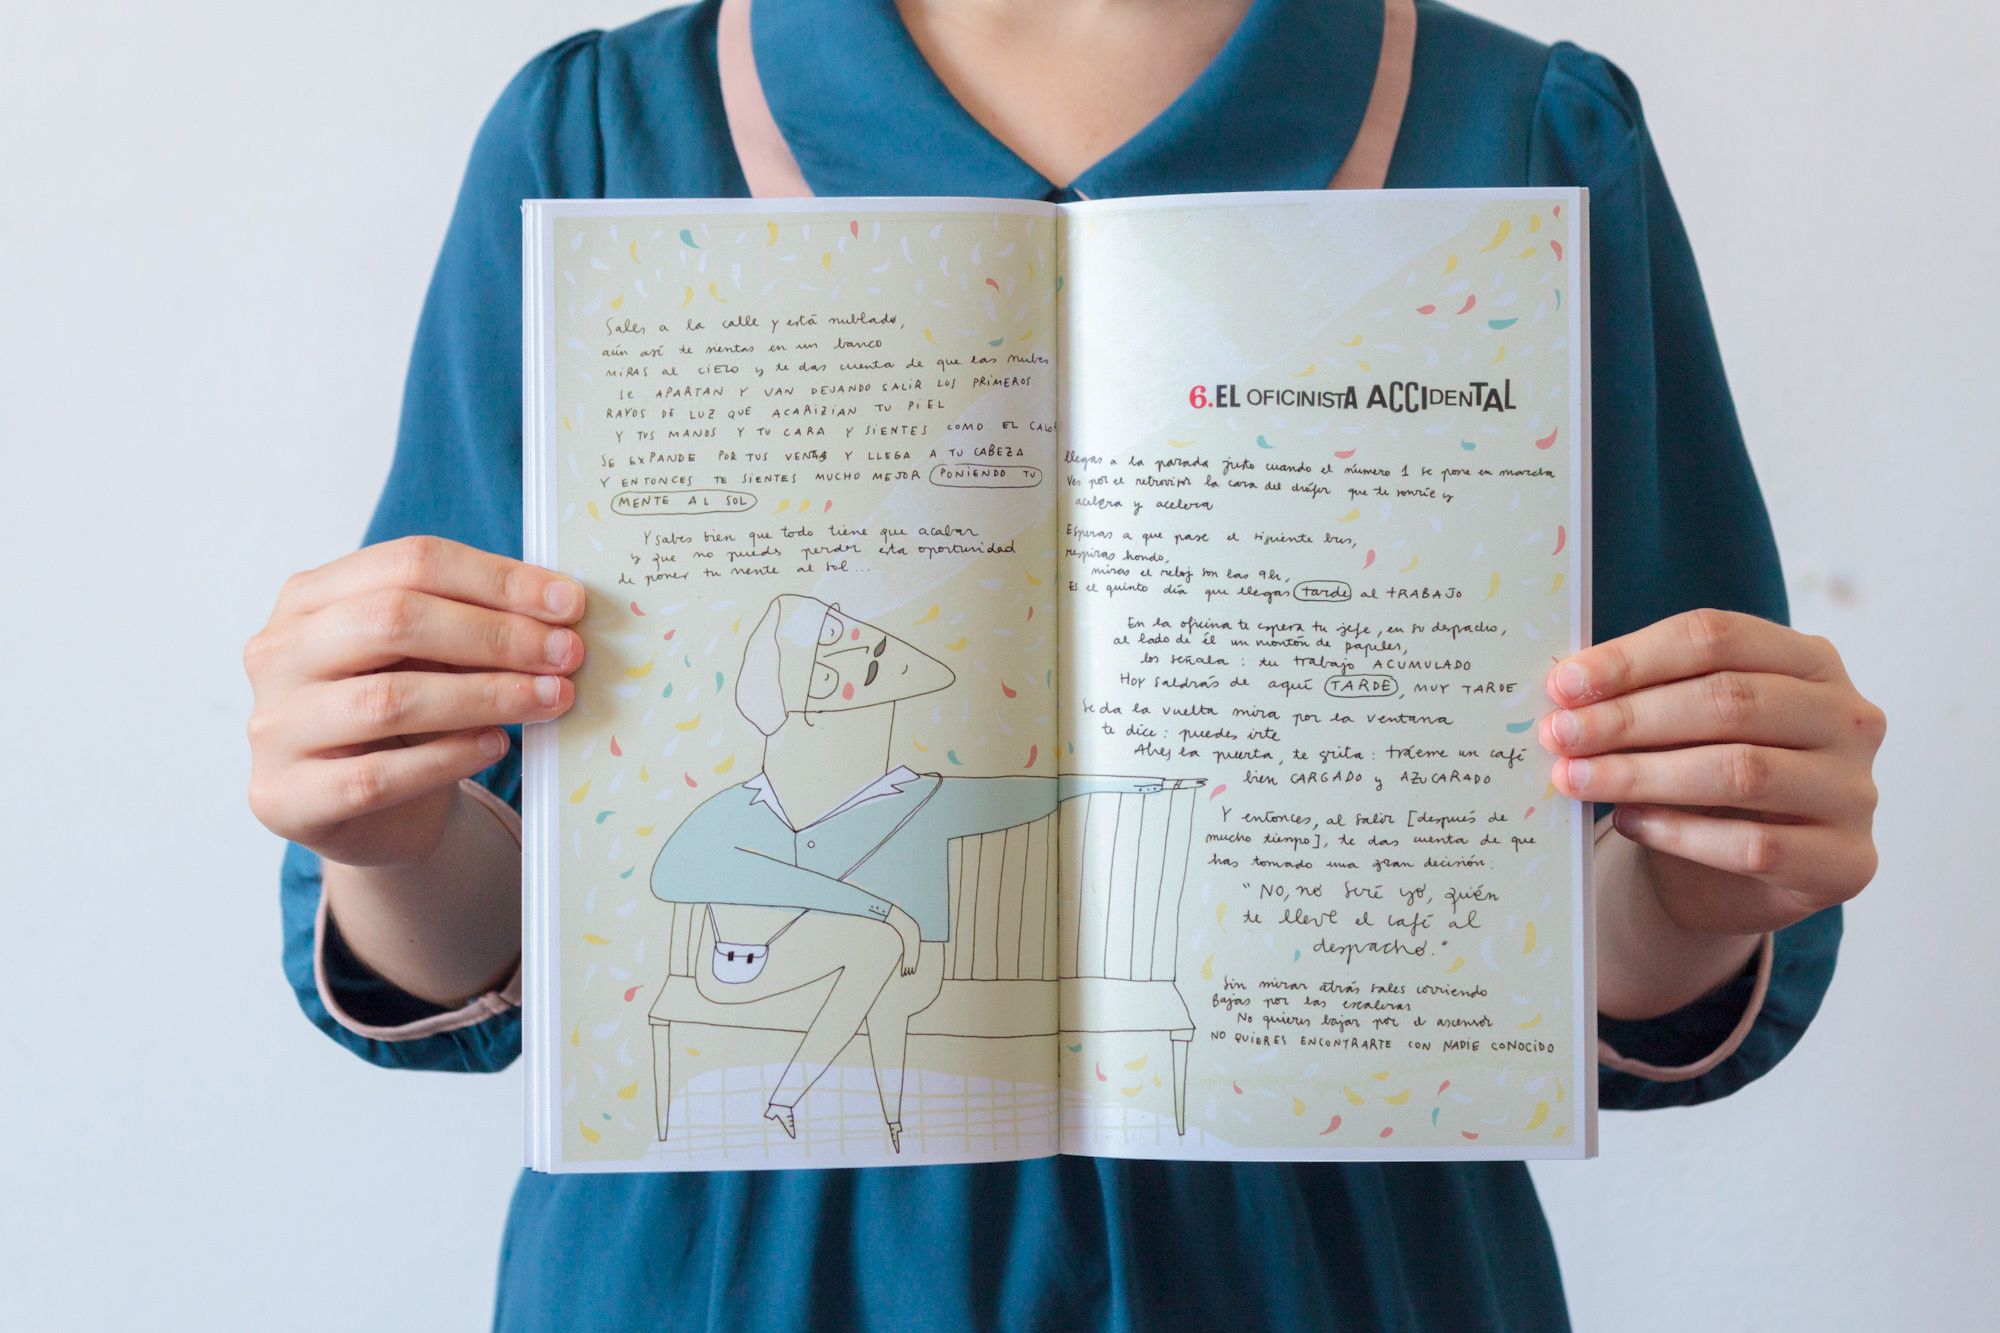 Sales a la calle y está nublado,
aún así te sientas en un banco
MIRAS AL CIELO y te das cuenta de que las nubes
SE APARTAN Y VAN DEJANDO SALIR LOS PRIMEROS
RAYOS DE LUZ QUE ACARIZIAN TU PIEL
Y TUS MANOS Y TU CARA Y SIENTES COMO EL CALOR
SE EXPANDE POR TUS VENAS Y LLEGA A TU CABEZA
Y ENTONCES TE SIENTES MUCHO MEJOR PONIENDO TU
MENTE AL SOL
Y sabes bien que todo tiene que acabar
y que no puedes perder esta oportunidad
de poner tu mente al sol...
6. EL OFICINISTA ACCIDENTAL
llegas a la parada justo cuando el número 1 se pone en marcha
Ves por el retrovisor la cara del chófer que te sonríe y
acelera y acelera
Esperas a que pase el siguiente bus,
respiras hondo,
miras el reloj son las 9h,
Es el quinto día que llegas tarde al TRABAJO
En la oficina te espera tu jefe, en su despacho,
al lado de él un montón de papeles,
los señala: tu trabajo ACUMULADO
Hoy saldrás de aquí TARDE, MUY TARDE
Se da la vuelta mira por la ventana
te dice: puedes irte
Abres la puerta, te grita: tráeme un café
bien CARGADO y AZUCARADO
Y entonces, al salir [después de
mucho tiempo], te das cuenta de que
has tomado una gran decisión:
"NO, no seré yo, quién
te lleve el café al
despacho."
Sin mirar atrás sales corriendo
Bajas por las escaleras
No quieres bajar por el ascensor
NO QUIERES ENCONTRARTE CON NADIE CONOCIDO